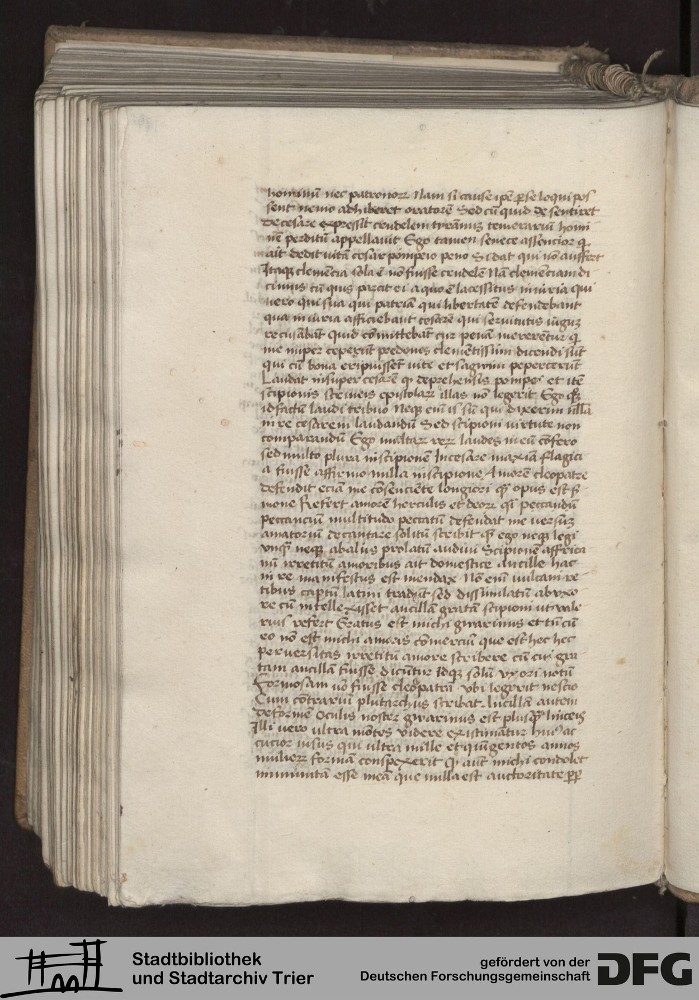 hominū nec patronoꝝ Nam si cause ipē ꝑ se loqui pos
sent nemo adhiberet oratorē Sed cū quid de sentiret
de cesare expressit crudelem tyrānū temerariū homi
nē perditū appellauit Ego tamen senece assencior q̄
ait dedit vitā cesar pompeio peno si dat qui nō auffert
Itaqꝫ clemēcia illa ē nō fuisse crudelē Nā clemēciam di
cimus cū quis parcit ei a quo ē lacessitus iniuria qui
uero qui sua qui patriā qui libertatē defendebant
qua iniuria afficiebant cesarē qui seruitutis iugū
recusabāt quid cōmittebāt cur penā mererētur q̄
me nuper ceperūt predones clemētissimi dicendi sūt
qui cū bona eripuissēt vite et sagwini pepercerūt
Laudat insuper cesarē qꝫ deprehensis pompei et itē
scipionis scrineis epistolaꝝ illas nō legerit Ego qꝫ
id factū laudi tribuo Neqꝫ em̄ is sū qui dixerim nulla
in re cesarem laudandū Sed scipioni virtute non
comparandū Ego multaꝝ reꝝ laudes in eū cōfero
sed multo plura in scipionē In cesare maxīa flagici
a fuisse affirmo nulla in scipione Amorē cleopatre
defendit eciā me cōsenciēte longiori qꝫ opus est s̄
mone Refert amorē herculis et deoꝝ qͣsi peccandū
peccanciū multitudo peccatū defendat me uersū
amatoriū decantare solitū scribit qͣs ego neqꝫ legi
vnqꝫ neqꝫ ab alijs prolatū audiui Scipionē affrica
nū irretitū amoribus ait domestice ancille hac
in re manifestus est mendax Nō em̄ vulcani re
tibus captū latini tradūt sed dissimilatū ab vxo
re cū intellexisset ancillā gratā scipioni ut vale
rius refert Gratus est michi gwarinus et tū cū
eo nō est michi amoris cōmerciū que est hec hec
peruersitas irretitū amore scribere cū cui gra
tam ancillā fuisse dicitur Idqꝫ solū vxori notū
Formosam nō fuisse cleopatrā vbi legerit nescio
Cum cōtrariū plutarchus scribat Ancillā autem
deformē Oculis noster gwarinus est plusqꝫ linceis
Illi uero ultra mōtes videre existimātur huiꝰ ac
cucior visus qui ultra mille et quīgentos annos
mulieꝝ formā conspexerit Qꝫ aūt michi condolet
inminutā esse meā que nulla est auctoritate ꝓp
Stadtbibliothek
und Stadtarchiv Trier
gefördert von der
Deutschen Forschungsgemeinschaft
DFG